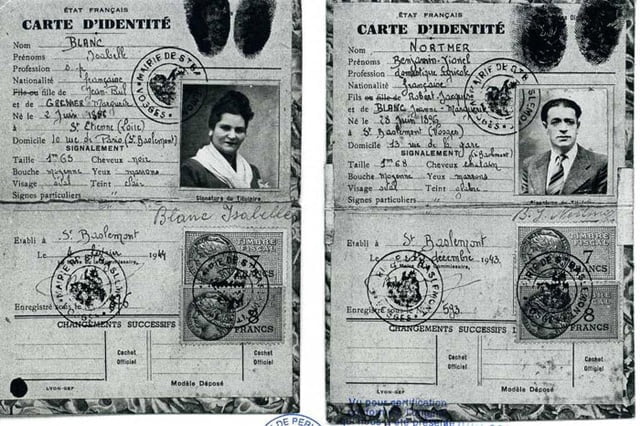 ÉTAT FRANÇAIS
CARTE D'IDENTITÉ
Nom BLANC
Prénoms Isabelle
Profession s.p.
Nationalité française
Fils ou fille de Jean Paul
et de GRENIER Marguerite
Né le 2 Juin 1886
à St Etienne (Loire)
Domicile 10 rue de Paris (St Baslemont)
SIGNALEMENT
Taille 1m65 Cheveux noir
Bouche moyenne Yeux marrons
Visage oval Teint clair
Signes particuliers
Signature du Titulaire
Blanc Isabelle
Etabli à St Baslemont
Le 1944
MAIRIE DE
TIMBRE
FISCAL
FRANCS
8
FRANCS
Enregistré sous
CHANGEMENTS SUCCESSIFS
Cachet Officiel
Cachet Officiel
LYON-GEF
Modèle Déposé
ÉTAT FRANÇAIS
CARTE D'IDENTITÉ
Nom NORTMER
Prénoms Benjamin-Lionel
Profession Domestique Agricole
Nationalité française
Fils ou fille de Robert Jacques
et de BLANC Jeanne-Marguerite
Né le 28 Juin 1896
à St Baslemont (Vosges)
Domicile 13 rue de la gare
SIGNALEMENT (St Baslemont)
Taille 1m68 Cheveux chatain
Bouche moyenne Yeux marrons
Visage oval Teint
Signes particuliers
Etabli à St Baslemont
Le décembre 1943
TIMBRE
FISCAL
7
FRANCS
8
FRANCS
Enregistré sous 593
CHANGEMENTS SUCCESSIFS
Cachet Officiel
Cachet Officiel
LYON-GEF
Modèle Déposé
Vu pour certification